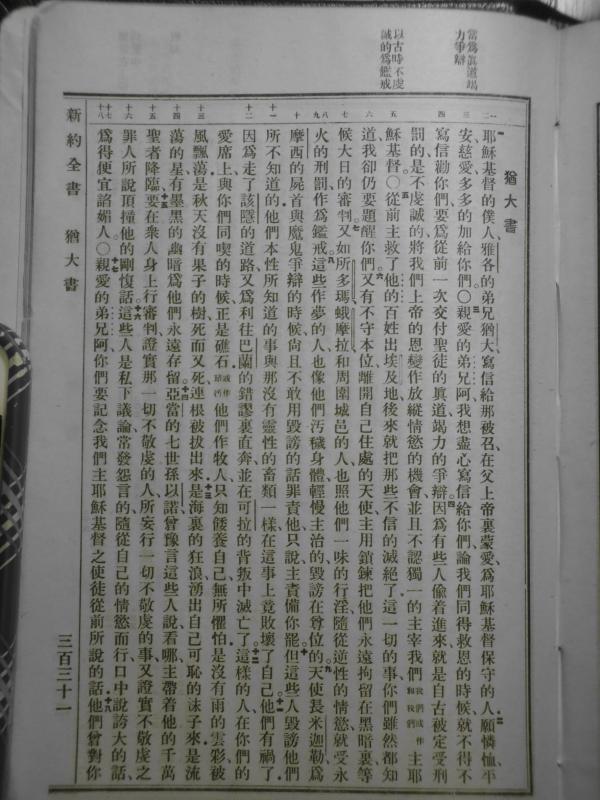 當爲眞道竭
力爭辯
以古時不虔
誠的爲鑑戒
猶大書
耶穌基督的僕人雅各的弟兄猶大寫信給那被召在父上帝裏蒙愛爲耶穌基督保守的人願憐恤平
安慈愛多多的加給你們〇親愛的弟兄阿我想盡心寫信給你們論我們同得救恩的時候就不得不
寫信勸你們要爲從前一次交付聖徒的眞道竭力的爭辯因爲有些人偷着進來就是自古被定受刑
罰的是不虔誠的將我們上帝的恩變作放縱情慾的機會並且不認獨一的主宰我們我們或作和我們主耶
穌基督〇從前主救了他的百姓出埃及地後來就把那些不信的滅絕了這一切的事你們雖然都知
道我卻仍要題醒你們又有不守本位離開自己住處的天使主用鎖鍊把他們永遠拘留在黑暗裏等
候大日的審判又如所多瑪蛾摩拉和周圍城邑的人也照他們一味的行淫隨從逆性的情慾就受永
火的刑罰作爲鑑戒這些作夢的人也像他們汚穢身體輕慢主治的毀謗在尊位的天使長米迦勒爲
摩西的屍首與魔鬼爭辯的時候尙且不敢用毀謗的話罪責他只說主責備你罷但這些人毀謗他們
所不知道的他們本性所知道的事與那沒有靈性的畜類一樣在這事上竟敗壞了自己他們有禍了
因爲走了該隱的道路又爲利往巴蘭的錯謬裏直奔並在可拉的背叛中滅亡了這樣的人在你們的
愛席上與你們同喫的時候正是礁石或作玷汚他們作牧人只知餧養自己無所懼怕是沒有雨的雲彩被
風飄蕩是秋天沒有果子的樹死而又死連根被拔出來是海裏的狂浪湧出自己可恥的沫子來是流
蕩的星有墨黑的幽暗爲他們永遠存留亞當的七世孫以諾曾豫言這些人說看哪主帶着他的千萬
聖者降臨要在衆人身上行審判證實那一切不敬虔的人所妄行一切不敬虔的事又證實不敬虔之
罪人所說頂撞他的剛愎話這些人是私下議論常發怨言的隨從自己的情慾而行口中說誇大的話
爲得便宜諂媚人〇親愛的弟兄阿你們要記念我們主耶穌基督之使徒從前所說的話他們曾對你
新約全書 猶大書
三百三十一